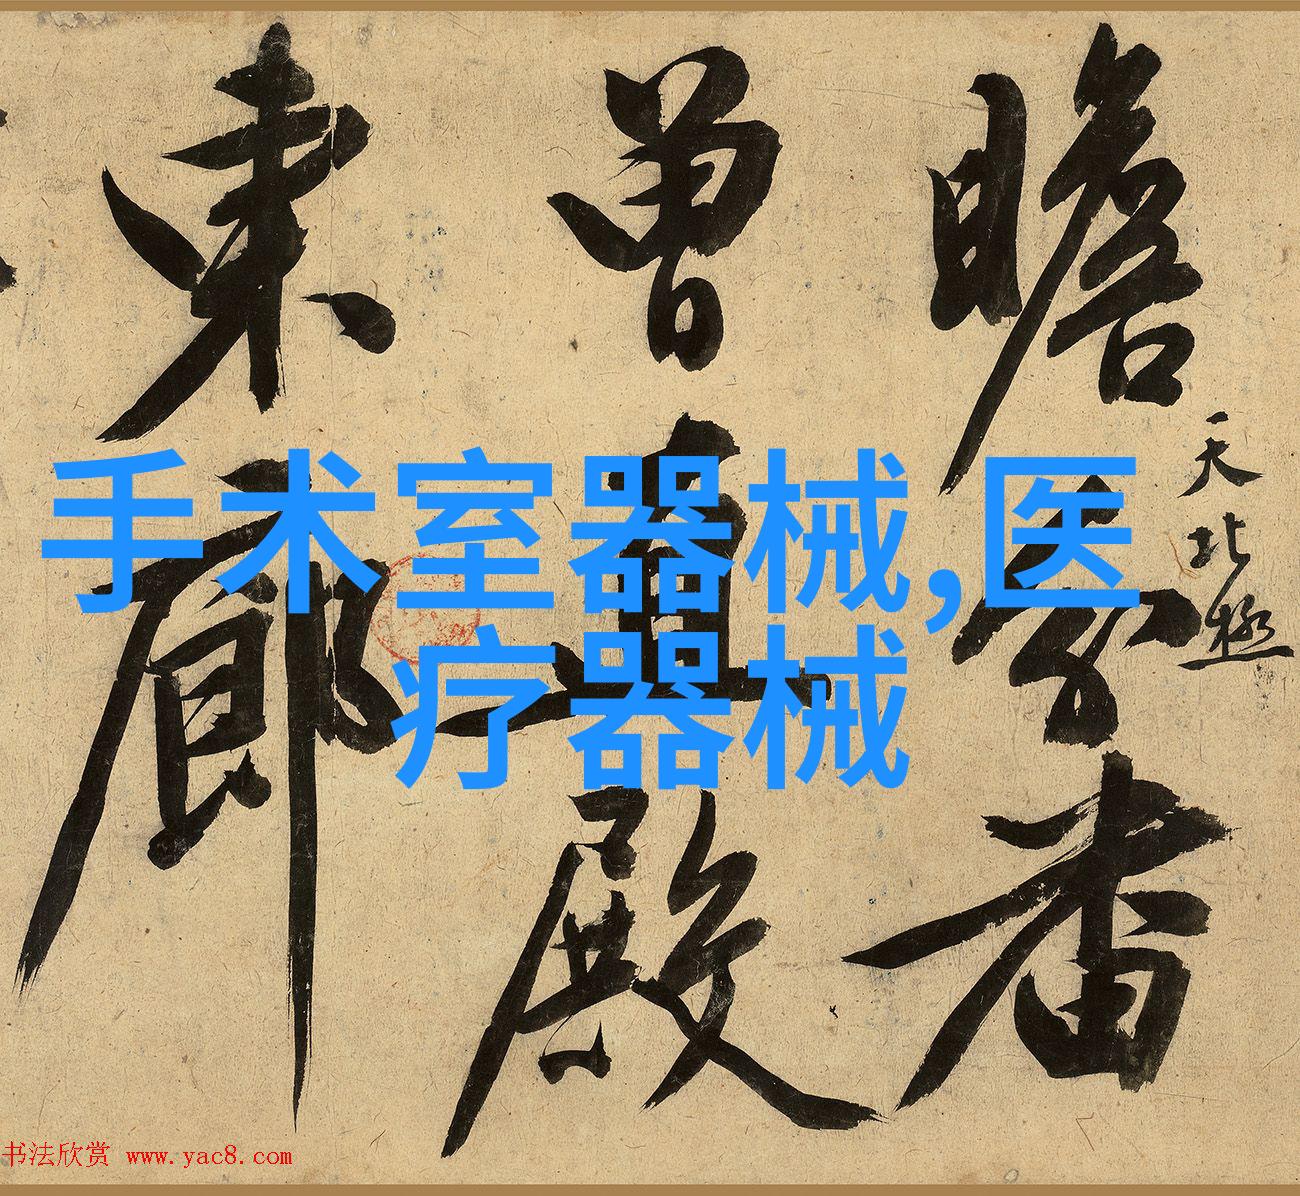 瞻
天北極
曾直殿
東廊
手术室器械,医
疗器械
书法欣赏 www.yac8.com